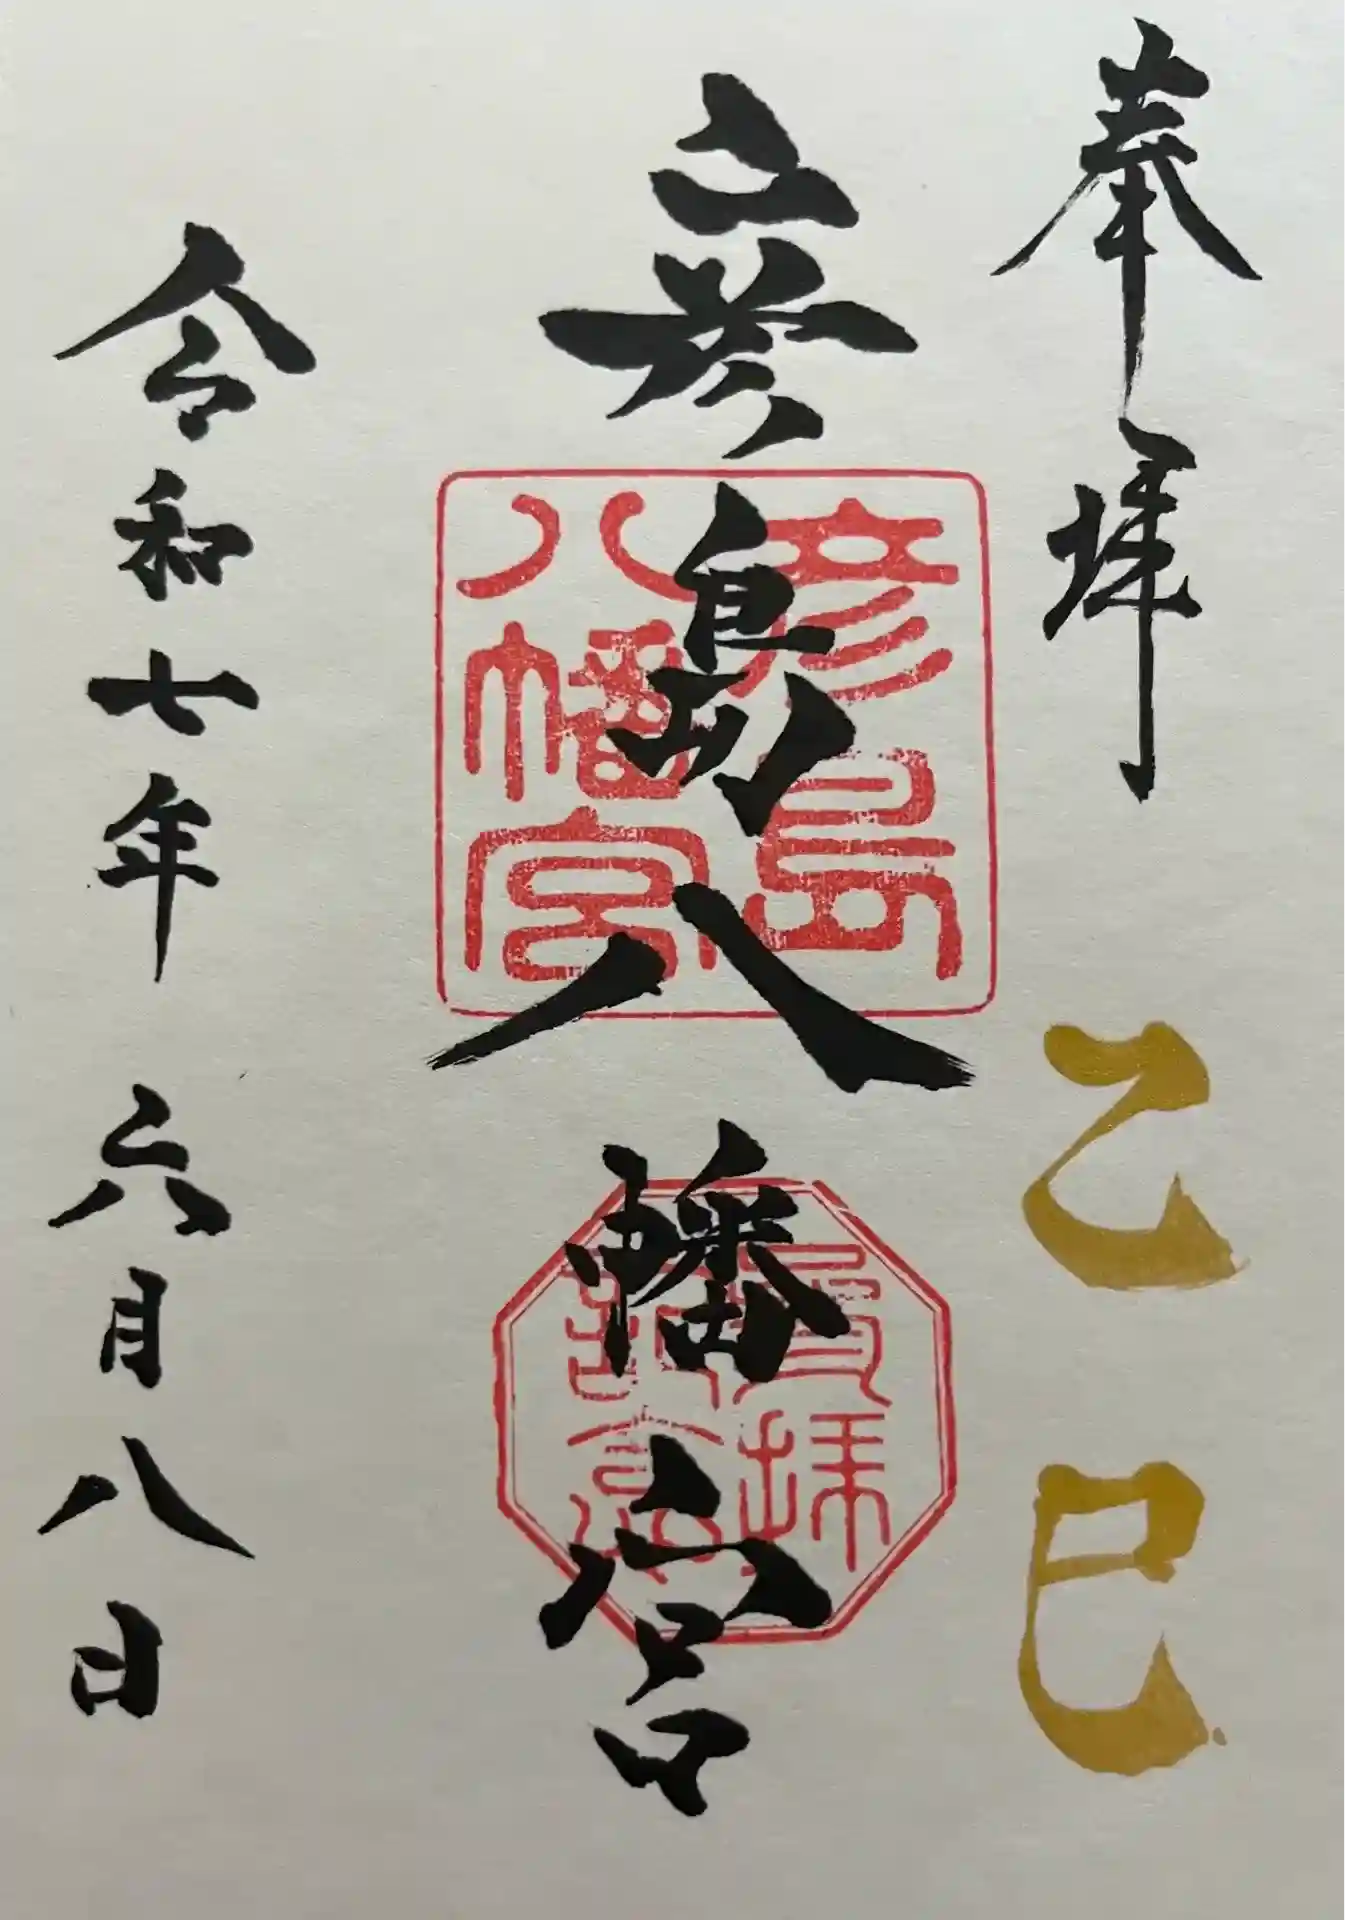 奉拝
乙巳
彦島八幡宮
彦島
八幡宮
参拝
記念
令和七年 六月八日